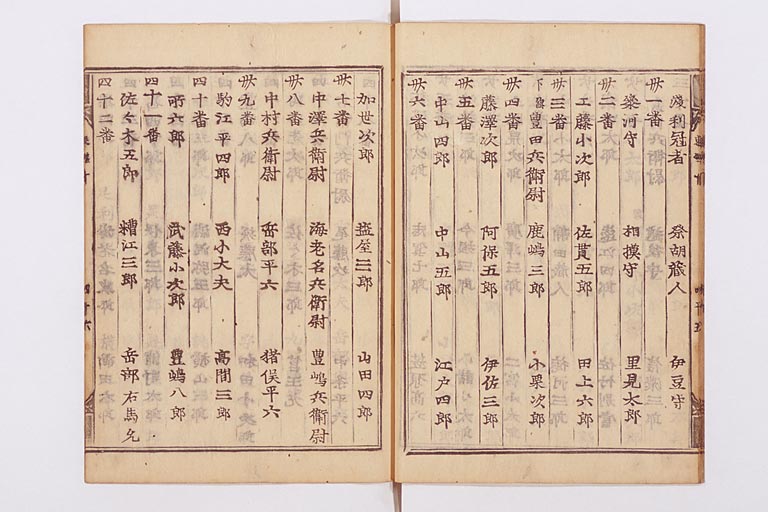 渡利冠者 祭胡蔵人 伊豆守
卅一番
参河守 相摸守 里見太郎
卅二番
工藤小次郎 佐貫五郎 田上六郎
卅三番
下 豊田兵衛尉 鹿嶋三郎 小栗次郎
卅四番
藤澤次郎 阿保五郎 伊佐三郎
卅五番
中山四郎 中山五郎 江戸四郎
卅六番
加世次郎 塩屋三郎 山田四郎
卅七番
中澤兵衛尉 海老名兵衛尉 豊嶋兵衛尉
卅八番
中村兵衛尉 岳部平六 猪俣平六
卅九番
駒江平四郎 西小大夫 高間三郎
四十番
所六郎 武藤小次郎 豊嶋八郎
四十一番
佐々木五郎 糟江三郎 岳部右馬允
四十二番